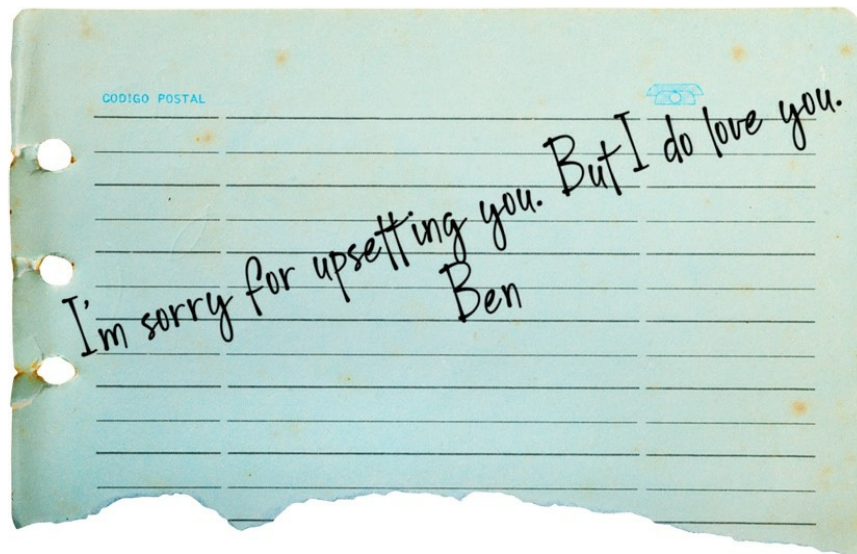 CODIGO POSTAL
I'm sorry for upsetting you. But I do love you.
Ben